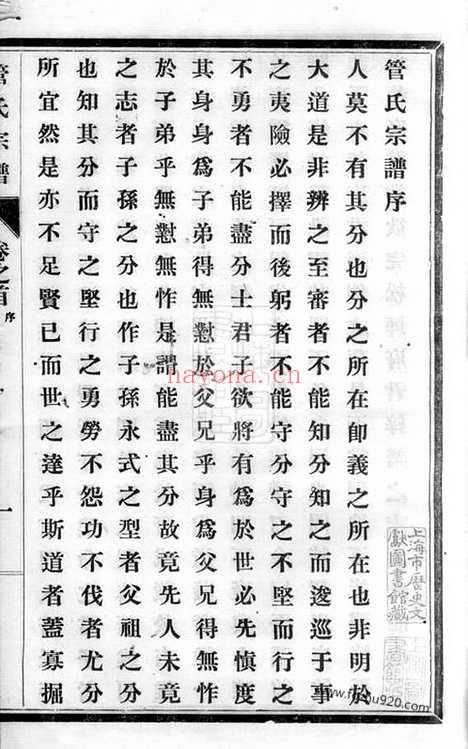 管氏宗譜序
人莫不有其分也分之所在卽義之所在也非明於
大道是非辨之至審者不能知分知之而逡巡于事
之夷險必擇而後躬者不能守分守之不堅而行之
不勇者不能盡分士君子欲將有爲於世必先慎度
其身身爲子弟得無懟於父兄乎身爲父兄得無怍
於子弟乎無懟無怍是謂能盡其分故竟先人未竟
之志者子孫之分也作子孫永式之型者父祖之分
也知其分而守之堅行之勇勞不怨功不伐者尤分
所宜然是亦不足賢已而世之達乎斯道者蓋寡搢
管氏宗譜
卷之首
序
一
上海市歷史文
獻圖書館藏
hayona.cn
www.fozhu920.com